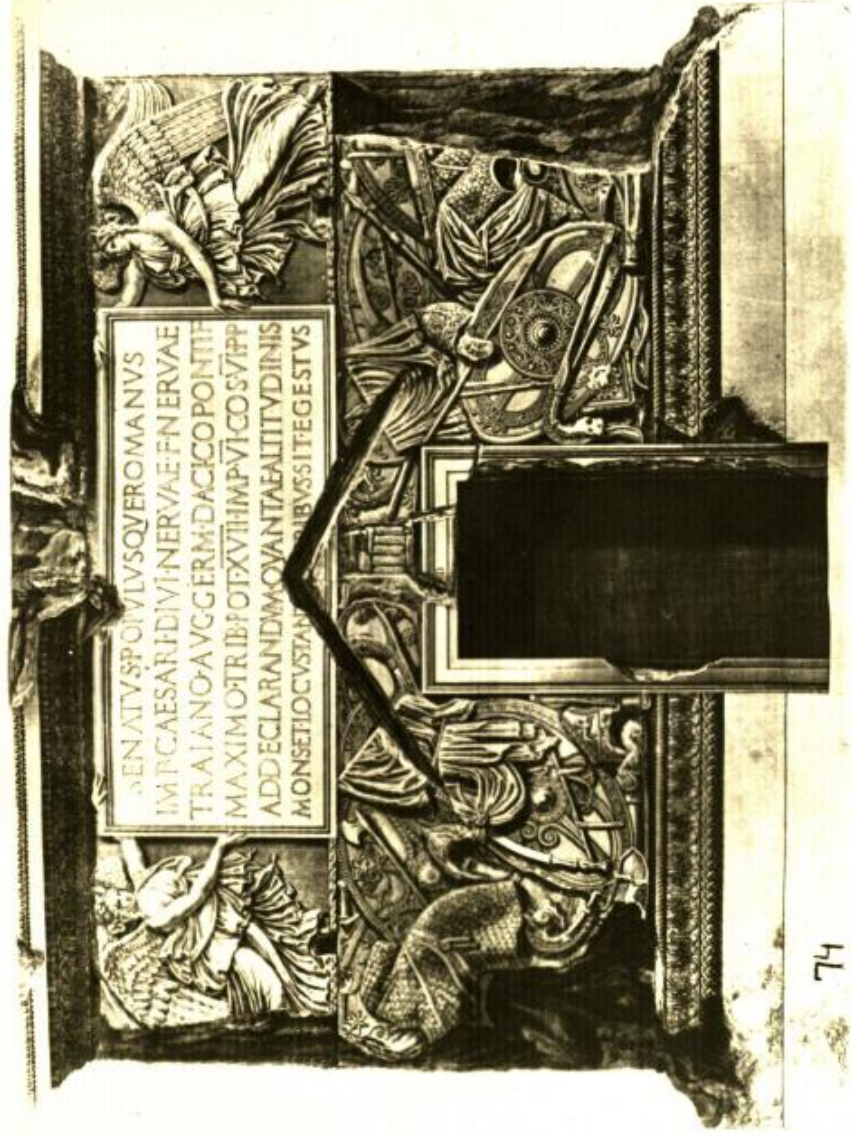 SENATVS·POPVLVSQVE·ROMANVS
IMP·CAESARI·DIVI·NERVAE·F·NERVAE
TRAIANO·AVG·GERM·DACICO·PONTIF
MAXIMO·TRIB·POT·XVII·IMP·VI·COS·VI·PP
AD·DECLARANDVM·QVANTAE·ALTITVDINIS
MONS·ET·LOCVS·TAN IBVS·SIT·EGESTVS
74